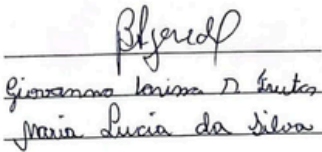 Giovanna Larissa D Freitas
Maria Lucia da Silva